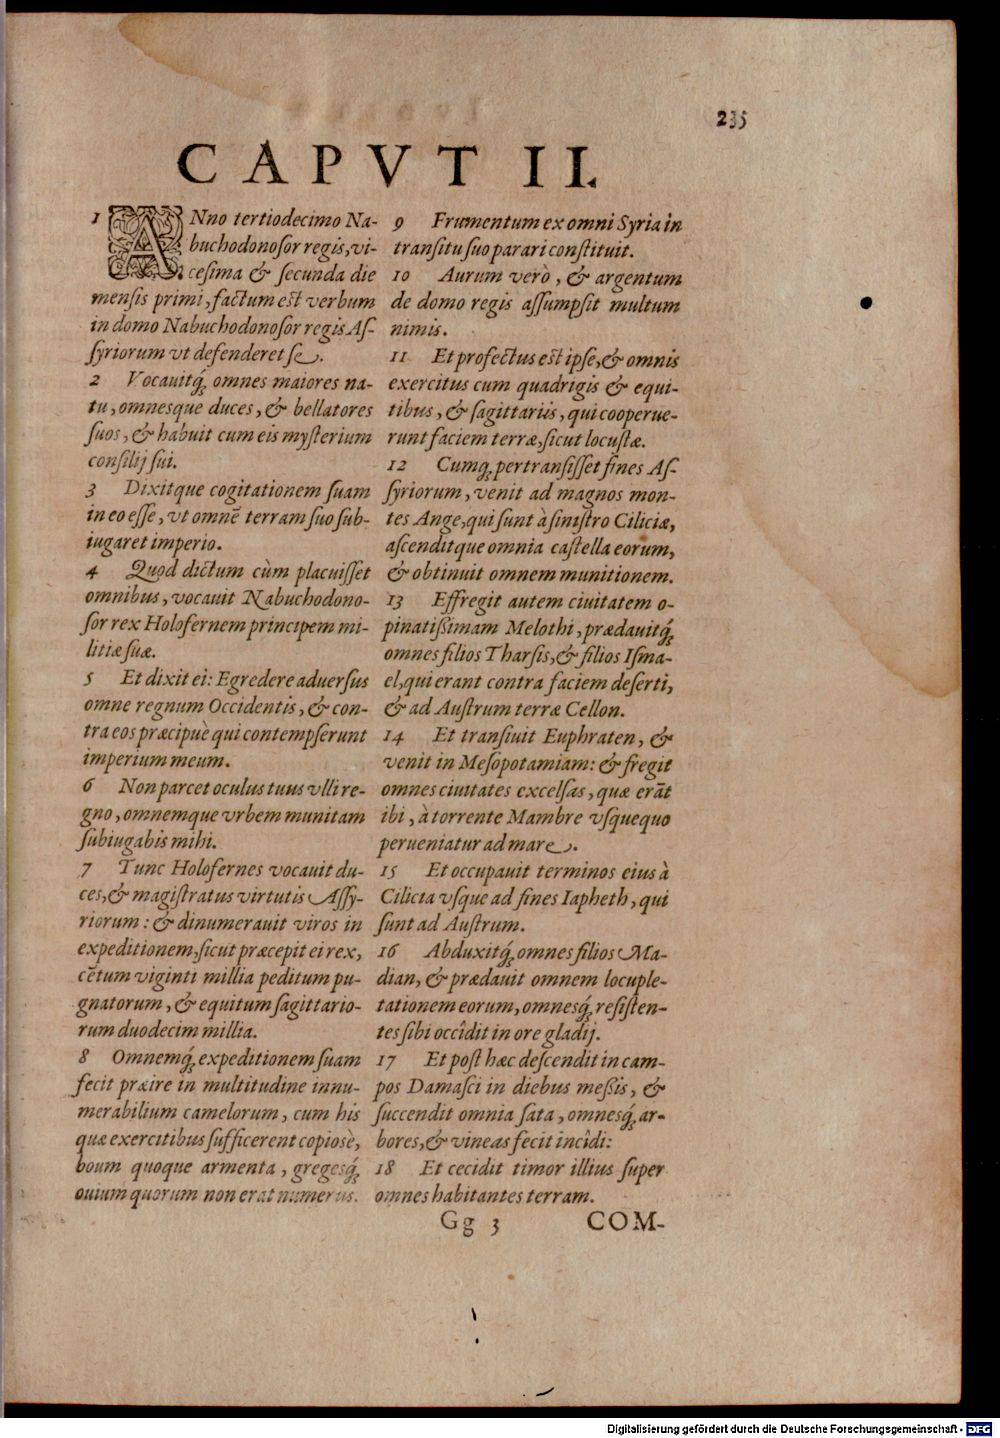 235
CAPVT II.
1 ANno tertiodecimo Na-
buchodonoſor regis, vi-
ceſima & ſecunda die
menſis primi, factum est verbum
in domo Nabuchodonoſor regis Aſ-
ſyriorum vt defenderet ſe.
2 Vocauitq́; omnes maiores na-
tu, omnesque duces, & bellatores
ſuos, & habuit cum eis myſterium
conſilij ſui.
3 Dixitque cogitationem ſuam
in eo eſſe, vt omnē terram ſuo ſub-
iugaret imperio.
4 Quod dictum cùm placuiſſet
omnibus, vocauit Nabuchodono-
ſor rex Holofernem principem mi-
litiæ ſuæ.
5 Et dixit ei: Egredere aduerſus
omne regnum Occidentis, & con-
tra eos præcipuè qui contempſerunt
imperium meum.
6 Non parcet oculus tuus vlli re-
gno, omnemque vrbem munitam
ſubiugabis mihi.
7 Tunc Holofernes vocauit du-
ces, & magiſtratus virtutis Aſſy-
riorum: & dinumerauit viros in
expeditionem, ſicut præcepit ei rex,
cētum viginti millia peditum pu-
gnatorum, & equitum ſagittario-
rum duodecim millia.
8 Omnemq́; expeditionem ſuam
fecit præire in multitudine innu-
merabilium camelorum, cum his
quæ exercitibus ſufficerent copiosè,
boum quoque armenta, gregesq́;
ouium quorum non erat numerus.
9 Frumentum ex omni Syria in
tranſitu ſuo parari conſtituit.
10 Aurum verò, & argentum
de domo regis aſſumpſit multum
nimis.
11 Et profectus est ipſe, & omnis
exercitus cum quadrigis & equi-
tibus, & ſagittariis, qui cooperue-
runt faciem terræ, ſicut locuſtæ.
12 Cumq́; pertranſiſſet fines Aſ-
ſyriorum, venit ad magnos mon-
tes Ange, qui ſunt à ſiniſtro Ciliciæ,
aſcenditque omnia caſtella eorum,
& obtinuit omnem munitionem.
13 Effregit autem ciuitatem o-
pinatißimam Melothi, prædauitq́;
omnes filios Tharſis, & filios Iſma-
el, qui erant contra faciem deſerti,
& ad Auſtrum terræ Cellon.
14 Et tranſiuit Euphraten, &
venit in Meſopotamiam: & fregit
omnes ciuitates excelſas, quæ erāt
ibi, à torrente Mambre vſquequo
perueniatur ad mare.
15 Et occupauit terminos eius à
Cilicia vſque ad fines Iapheth, qui
ſunt ad Auſtrum.
16 Abduxitq́; omnes filios Ma-
dian, & prædauit omnem locuple-
tationem eorum, omnesq́; reſiſten-
tes ſibi occîdit in ore gladij.
17 Et poſt hæc deſcendit in cam-
pos Damaſci in diebus meßis, &
ſuccendit omnia ſata, omnesq́; ar-
bores, & vineas fecit incîdi:
18 Et cecidit timor illius ſuper
omnes habitantes terram.
Gg 3 COM-
Digitalisierung gefördert durch die Deutsche Forschungsgemeinschaft - DFG